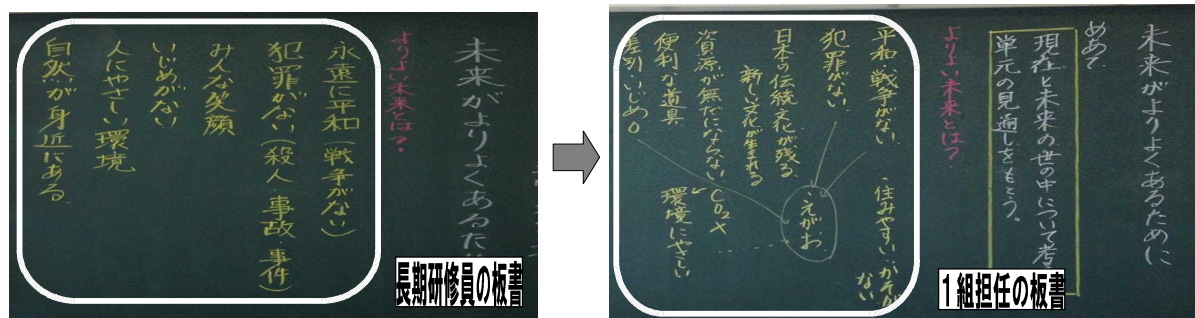 未来がよりよくあるた
よりよい未来とは?
永遠に平和(戦争がない)
犯罪がない(殺人・事故・事件)
みんな笑顔
いじめがない
人にやさしい環境
自然が身近にある
長期研修員の板書
未来がよりよくあるために
めあて
現在と未来の世の中について考
単元の見通しをもとう。
よりよい未来とは?
平和 戦争がない 住みやすい
犯罪がない
えがお
日本の伝統文化が残る
新しい文化が生まれる
資源が無だにならない CO2×
環境にやさしい
便利な道具
差別いじめ0
1組担任の板書